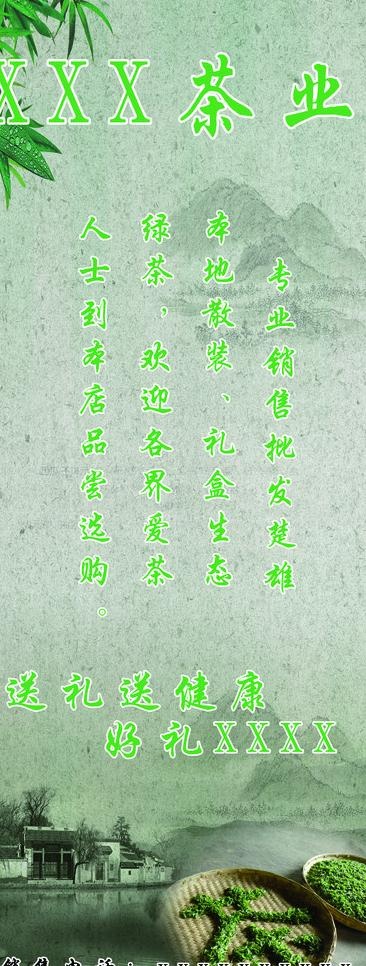 XXX茶业
专业销售批发楚雄
本地散装、礼盒生态
绿茶，欢迎各界爱茶
人士到本店品尝选购。
送礼送健康
好礼XXXX
茶